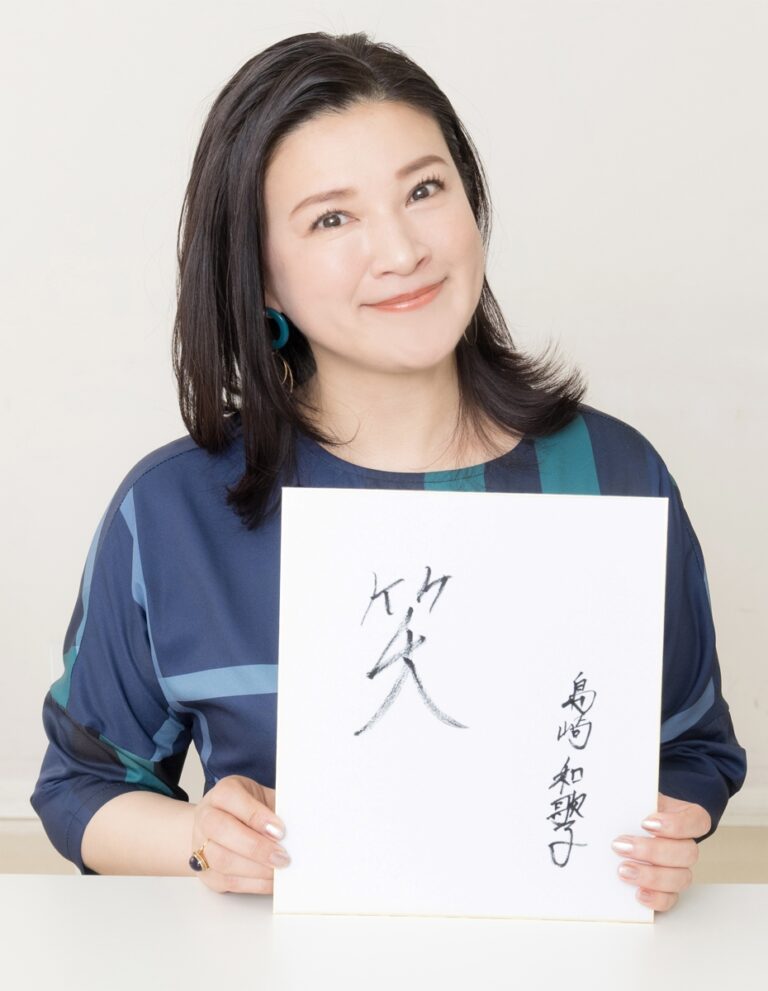 笑
島崎和歌子